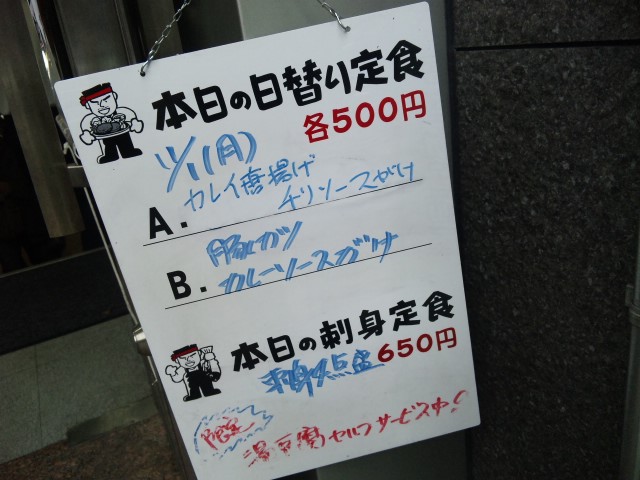 本日の日替り定食
各500円
12/1(月)
A. カレイ唐揚げ
チリソースがけ
B. 豚カツ
カレーソースガケ
本日の刺身定食
650円
刺身4点盛
限定
湯豆腐セルフサービス中!